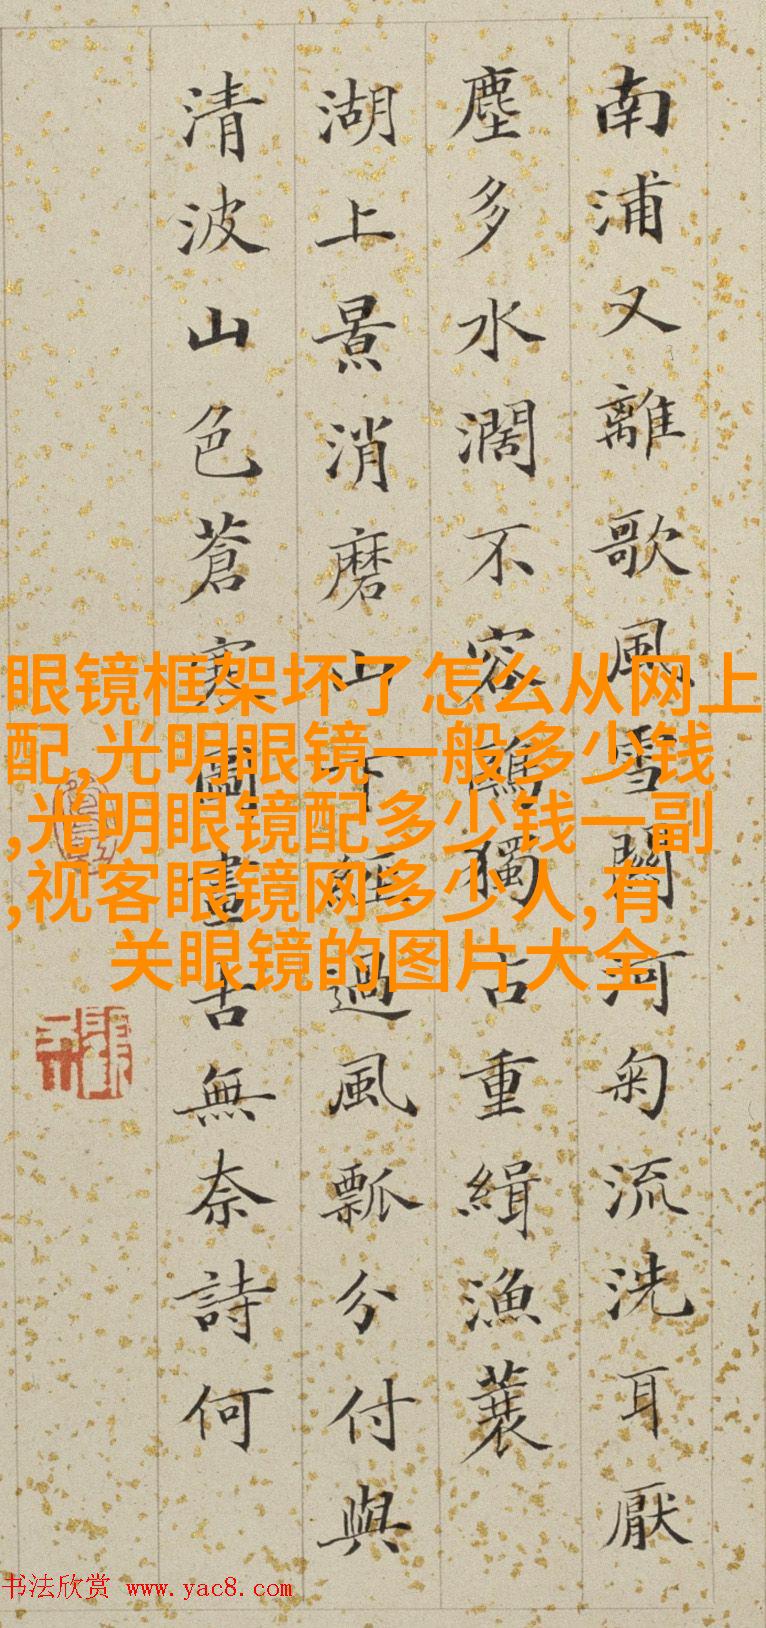 南浦又離歌風雪關河匊流洗耳厭
塵多水濶不容鷗獨占重緝漁蓑
湖上景消磨山下經過風瓢分付與
清波山色蒼寒圖畫古無奈詩何
眼镜框架坏了怎么从网上
配,光明眼镜一般多少钱
,光明眼镜配多少钱一副
,视客眼镜网多少人,有
关眼镜的图片大全
书法欣赏 www.yac8.com